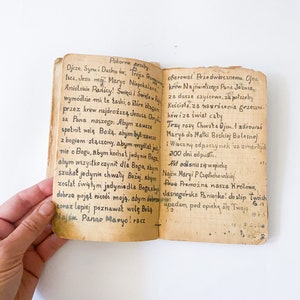 Pokorne prośby.
Ojcze, Synu i Duchu św., Trójco
lico, Jezu mój, Maryo Niepokalana
Aniołowie Pańscy! Święci i Święte
wymódlcie mi te łaski o które błagam
przez krew najdroższą Jezusa Chrystusa
Pana naszego: Abym zawsze
spełnił wolę Bożą, abym był zawsze
z Bogiem złączony, abym myślał je-
nie o Bogu, abym kochał jedynie Boga,
abym wszystko czynił dla Boga, abym
szukał jedynie chwały Bożej, abym
został świętym jedynie dla Boga, abym
dobrze pojął nicość moją, abym
coraz lepiej poznawał wolę Bożą
Najśw. Panno Maryo!
ofiarować Przedwiecznemu Ojcu
krew Najświętszą Pana Jezusa,
za dusze czyścowe, za potrzeby
Kościoła, za nawrócenia grzeszni-
ków i za świat cały
Trzy razy Chwała Ojcu, i Zdrowaś
Marya do Matki Boskiej Bolesnej
i Wieczny odpoczynek za zmarłych
300 dni odpust.
Akt oddania się w opiekę
Najśw. Maryi P. Częstochowskiej
Można nasza Królowo,
Jasnogórska Panienko! do stóp Twoich
upadam, pod opiekę się Twoją